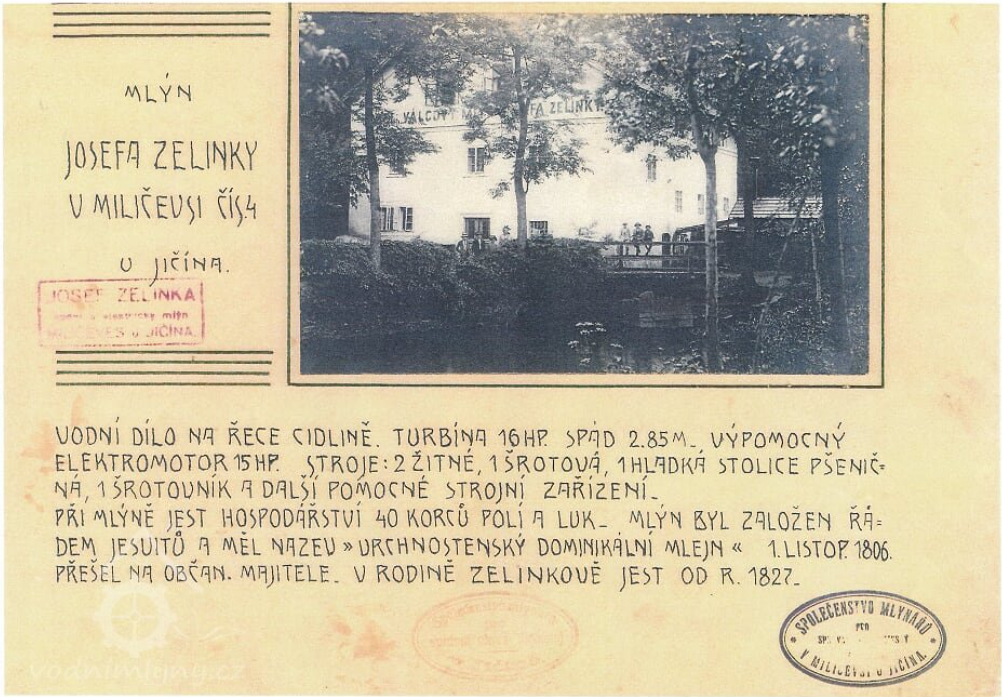 MLÝN
JOSEFA ZELINKY
V MILIČEVSI ČÍS.4
U JIČÍNA.
JOSEF ZELINKA
elektrický mlýn
U JIČÍNA.
VÁLCOVÝ M FA ZELINKY
VODNÍ DÍLO NA ŘECE CIDLINĚ. TURBÍNA 16 HP. SPÁD 2.85 M. VÝPOMOCNÝ
ELEKTROMOTOR 15 HP. STROJE: 2 ŽITNÉ, 1 ŠROTOVÁ, 1 HLADKÁ STOLICE PŠENIČ=
NÁ, 1 ŠROTOVNÍK A DALŠÍ POMOCNÉ STROJNÍ ZAŘÍZENÍ.
PŘI MLÝNĚ JEST HOSPODÁŘSTVÍ 40 KORCŮ POLÍ A LUK. MLÝN BYL ZALOŽEN ŘÁ=
DEM JESUITŮ A MĚL NAZEV » VRCHNOSTENSKÝ DOMINIKÁLNÍ MLEJN « 1. LISTOP. 1806.
PŘEŠEL NA OBČAN. MAJITELE. V RODINĚ ZELINKOVĚ JEST OD R. 1827.
SPOLEČENSTVO MLYNÁŘŮ
PRO
V MILIČEVSI U JIČÍNA.
vodnimlyny.cz